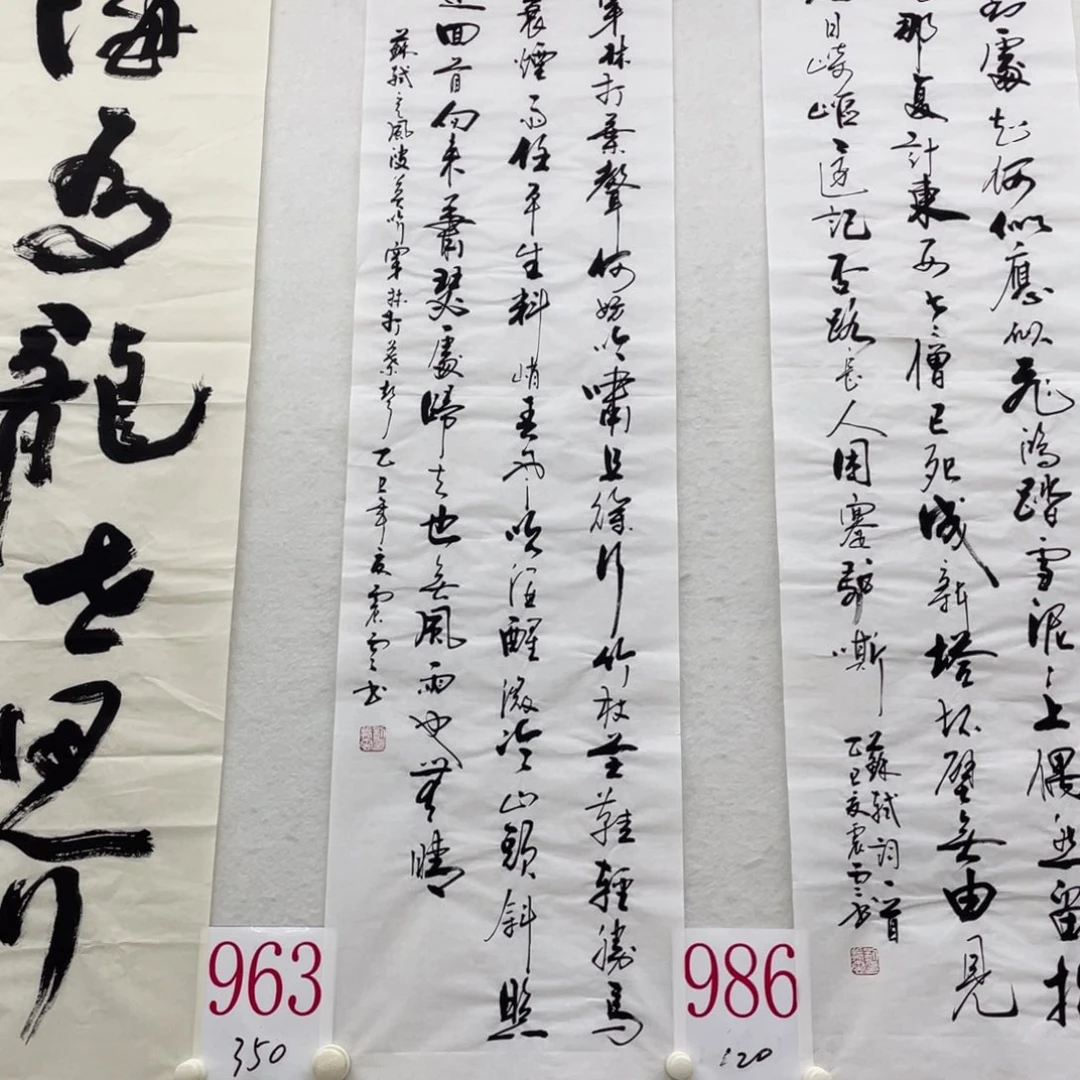 處知何似應似飛鴻踏雪泥泥上偶然留指
那复計東西老僧已死成新塔坏壁無由見
日崎嶇還記否路長人困蹇驢嘶
蘇軾詞一首
乙巳夏震雲書
穿林打葉聲何妨吟嘯且徐行竹杖芒鞋輕勝馬
蓑煙雨任平生料峭春風吹酒醒微冷山頭斜照
迎回首向來蕭瑟處歸去也無風雨也無晴
蘇軾定風波莫聽穿林打葉聲乙巳年夏震雲書
海為龍世界
963
350
986
120